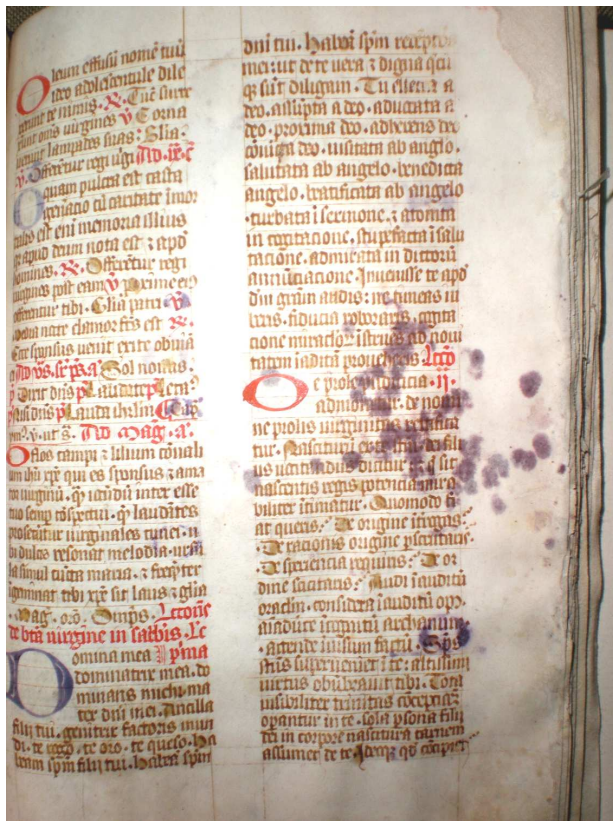 Oleum effusū nomē tuū
ideo adolescentule dile
xerunt te nimis. R. Tūc surre
xerunt oms uirgines V Et orna
uerunt lampades suas. Glia.
V. Offerētur regi ugī Ad. īē. ē
O quam pulcra est casta
igenacio cū caritate īmor
talis est enī memoria illius
qr apud deum nota est ⁊ apd
homines. R. Offerētur regi
uirgines post eam V Proxime eiꝰ
offerentur tibi. Glia patri V
Media nocte clamor fcs est R.
Ecce sponsus uenit exite obuiā
ei Ad vs. sr ps. a. Sol nouas.
p Dixit dns p Laudate p Leta?
sus dns p Lauda ihrlm Cap
V. ut s. Ad Mag. a.
O flos campi ⁊ lilium cōnall
ium ihū xpe qui es sponsus ⁊ ama
tor uirginū. qꝫ iocūdū inter esse
tuo semp cōspectui. qꝫ laudātes
prosecūtur uirginales turīe. u
bi dulcis resonat melodia. urā
la simul cūcta maria. ⁊ frequēter
igeminat tibi xpē sit laus ⁊ glia
. Mag. oro. Omps. Lcōns
de bta uirgine in sabbis. Lc
Domina mea pma
dominatrix mea. do
minans michi. ma
ter dni mei. Ancilla
filij tui. genitrix factoris mun
di. te rogo. te oro. te queso. ha
beam spm filij tui. habeā spm
dni tui. Habeā spm receptor
meruit de te uera ⁊ digna
sūt diligam. Tu electa a
deo. assūpta a deo. aduocata a
deo. proxima deo. adherens deo
cōiūcta deo. uisitata ab angelo.
salutata ab angelo. benedicta
angelo. beatificata ab angelo
. turbata ī sermone. ⁊ atonita
in cogitacione. stupefacta ī salu
tacione. admirata in dictorū
annūciacione. Inuenisse te apd
dm grām audis: ne timeas iu
beris. fiducia roboraris. cogni
cione miraclorꝫ īstrueris ad noui
tatem īaudita proueheris. Lcō
De prole pudicicia. ii.
admonetur. de nomi
ne prolis uirginitas certifica
tur. Nascitur ex te fcm. dei fili
us uocatandus dicitur ⁊ qꝫ sit
nascentis regis potencia miro
biliter ītimatur. Quomodo fi
at queris. De origine īterogas.
De racionis origine pscrutaris.
De experiencia requiris: De or
dine sciscitaris. Audi īauditū
oraclm. considera īauditū opꝰ.
aīaduce īcognitū archanum
. attende īuisum factū. Sps
scūs superueniet ī te: altissimi
uirtus obūbrauit tibi. Tota
īuisibiliter trinitas cōceptōꝫ
operantur in te. sola psona filij
dei in corpore nascitura carnem
assumet de te Ideoqꝫ qd cōcipiet